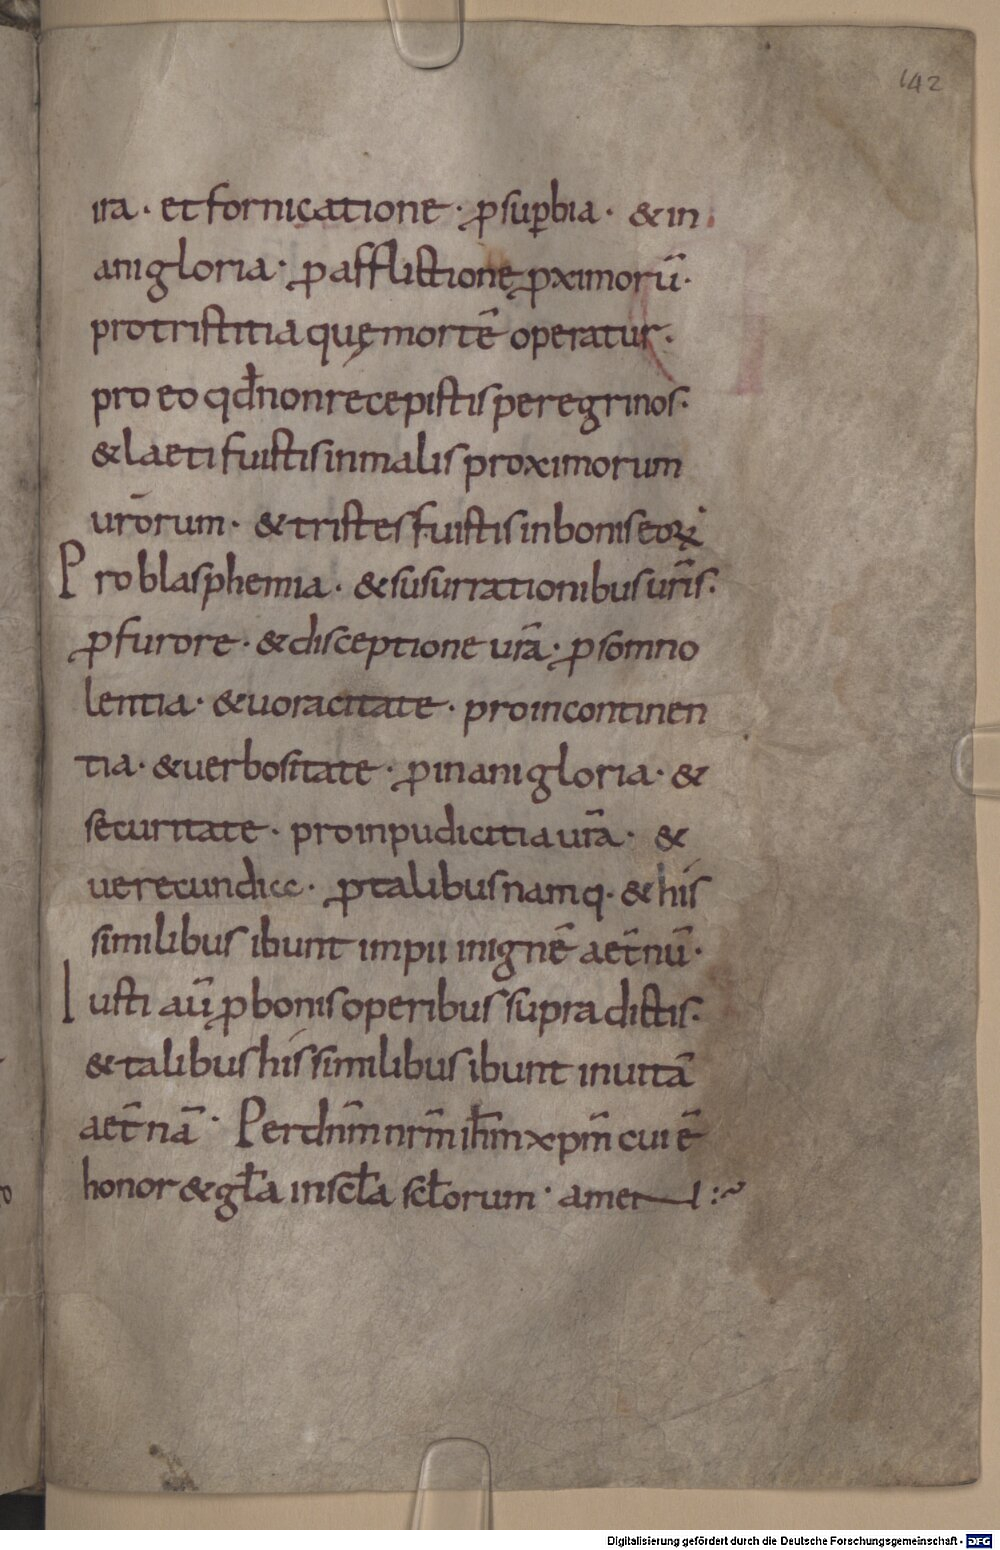 142
ira· et fornicatione· ꝓ suꝑbia· & in
ani gloria· ꝓ afflictione ꝓximorū·
pro tristitia quę mortē operatur·
pro eo qđ non recepistis peregrinos·
& laeti fuistis in malis proximorum
urōrum· & tristes fuistis in bonis eoꝝ·
Pro blasphemia· & susurrationibus ur̄is·
ꝓ furore· & disceptione ur̄a· ꝓ somno
lentia· & uoracitate· pro incontinen
tia· & uerbositate· ꝓ inani gloria· &
securitate· pro inpudicitia ur̄a· &
uerecundice· ꝓ talibus namq· & his
similibus ibunt impii in ignē aet̄nū·
Iusti aū ꝓ bonis operibus supra dictis·
& talibus his similibus ibunt in uitā
aet̄nā· Per dn̄m nr̄m ih̄m xp̄m cui ē
honor & gl̄a in scl̄a scl̄orum· amen :~
Digitalisierung gefördert durch die Deutsche Forschungsgemeinschaft - DFG